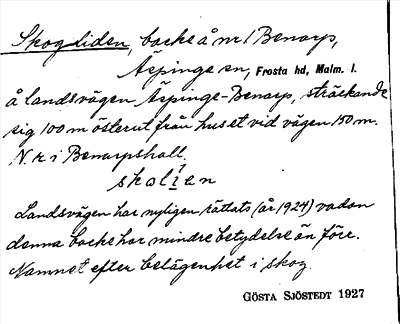 Skogliden, backe å nr 1 Benarp,
Äspinge sn, Frosta hd, Malm. l.
å landsvägen Äspinge-Benarp, sträckande
sig 100 m österut från huset vid vägen 150 m.
N. r i Benarpshall.
skalien
Landsvägen har nyligen rättats (år 1924) vadan
denna backe har mindre betydelse än före.
Namnet efter belägenhet i skog.
GÖSTA SJÖSTEDT 1927